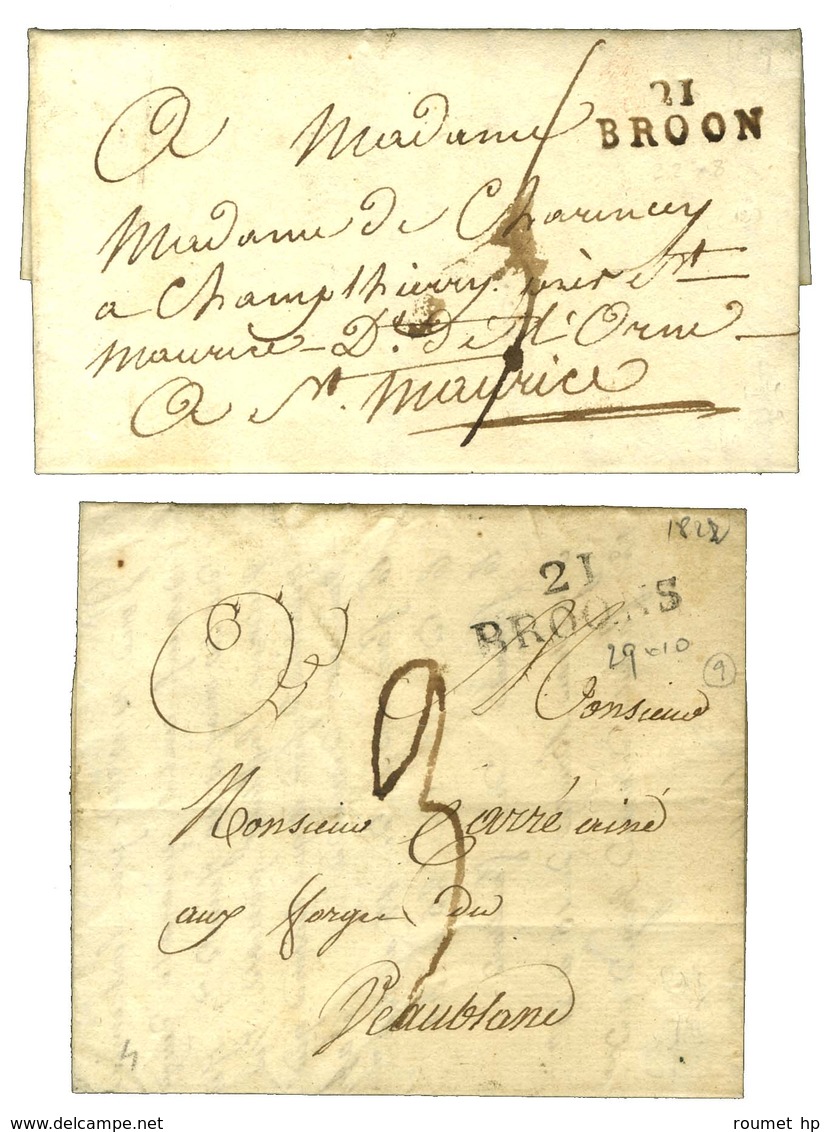 21
BROON
A Madame
Madame de Charencey
a Champthierry près St
Maurice - Dt. De L'Orne -
A St. Maurice
1822
21
BROONS
29 10
9
A Monsieur
3
Monsieur Carré ainé
aux forges du
Veaublanc
4
roumet hp